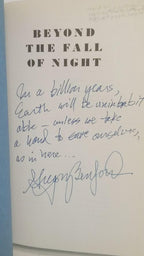 BEYOND
THE FALL
OF NIGHT
In a billion years,
Earth will be uninhabit
able – unless we take
a hand to save ourselves,
as in here...
Gregory Benford